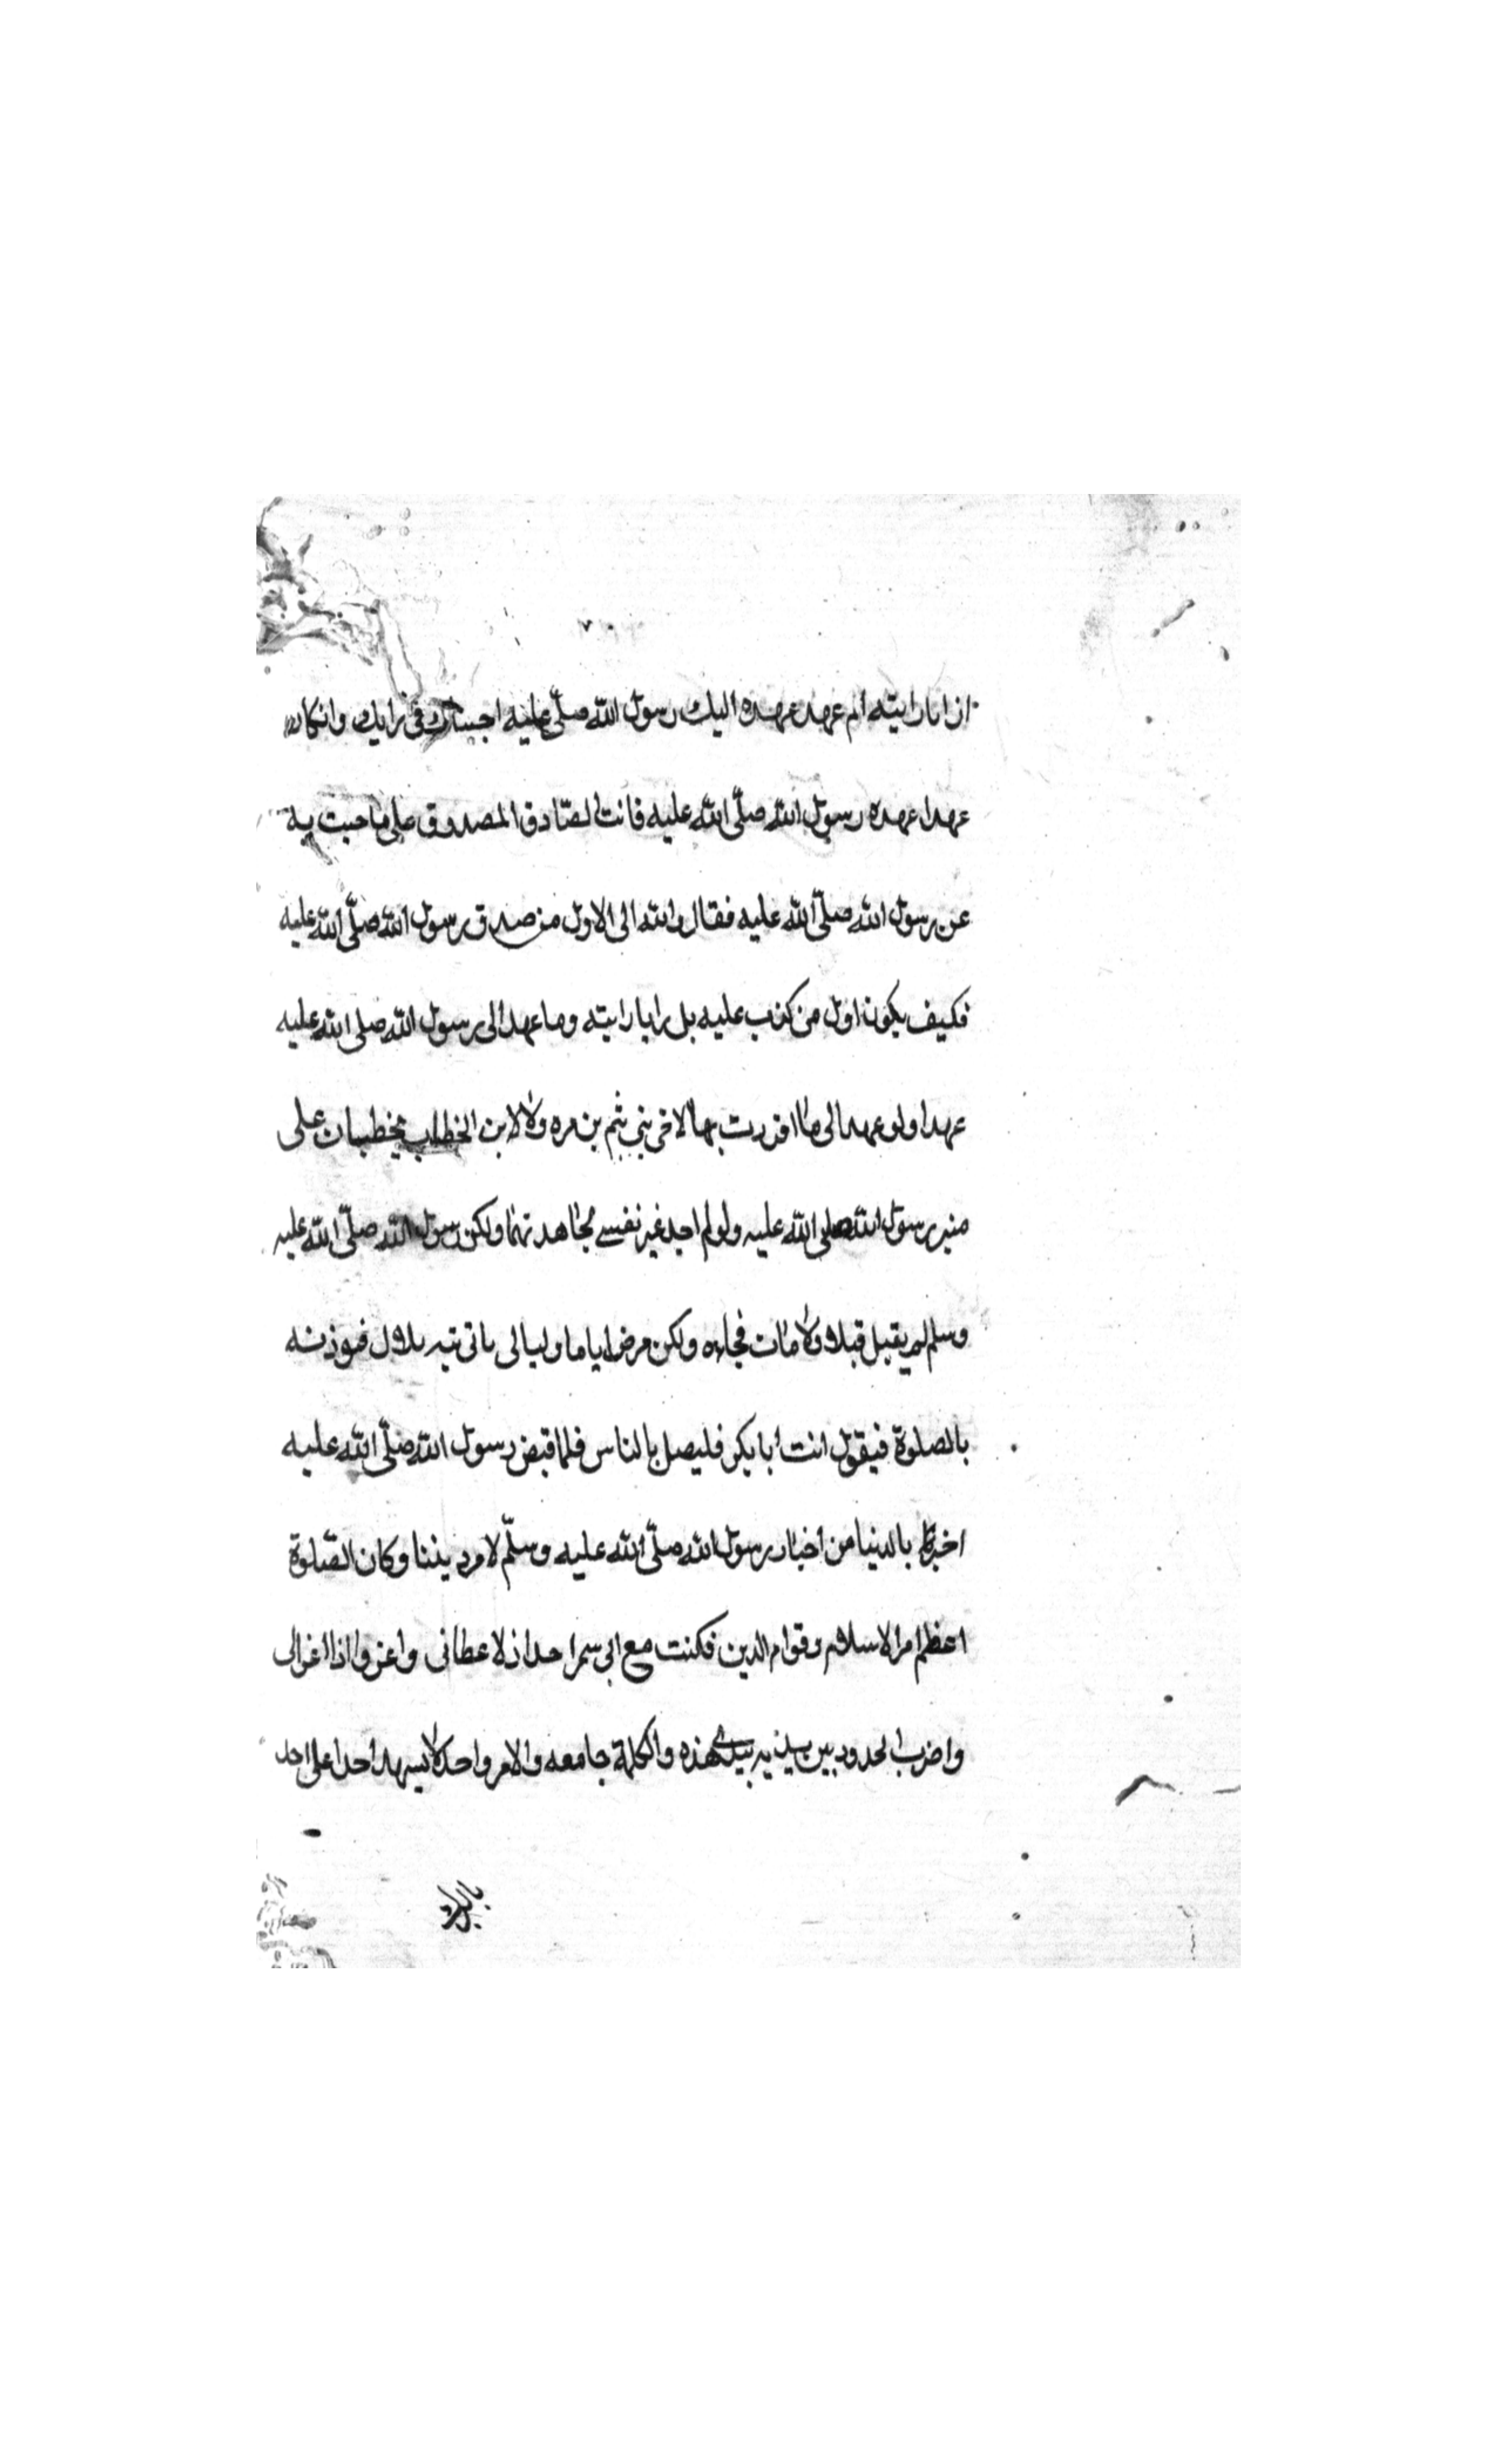 ازا نا رايته الم عهد عهده اليك رسول الله صلّى عليه اجبناك فى رايك وان كان
عهدا عهده رسول الله صلّى الله عليه فانت الصّادق المصدوق على ما حبت به
عن رسول الله صلّى الله عليه فقال والله الى الاول من صدق رسول الله صلّى الله عليه
فكيف يكون اول من كذب عليه بل رايا رايته وما عهد الى رسول الله صلى الله عليه
عهدا ولو عهد الى ما اقررت بها لاخى بنى تيم بن مره ولا لابن الخطاب يخطبان على
منبر رسول الله صلى الله عليه ولو لم اجد غير نفسے لجاهدتهما ولكن رسول الله صلّى الله عليه
وسلم لم يقبل قبلا ولا مات فجاءه ولكن مرض اياما وليالى ياتى تيه بلال فيوذنه
بالصلوة فيقول انت أبا بكر فليصل بالناس فلما قبض رسول الله صلّى الله عليه
بالدنيا من اخبار رسول الله صلّى الله عليه وسلّم لامر ديننا وكان الصّلوة
اعظم امر الاسلام وقوام الدين فكنت مع ابى سمرا حدا ذلا عطانى واغزوا اذا اغزالى
واضرب الحدود بين يديه بيدى هذه والكلمة جامعه والامر واحد لا يسهد احدا على احد